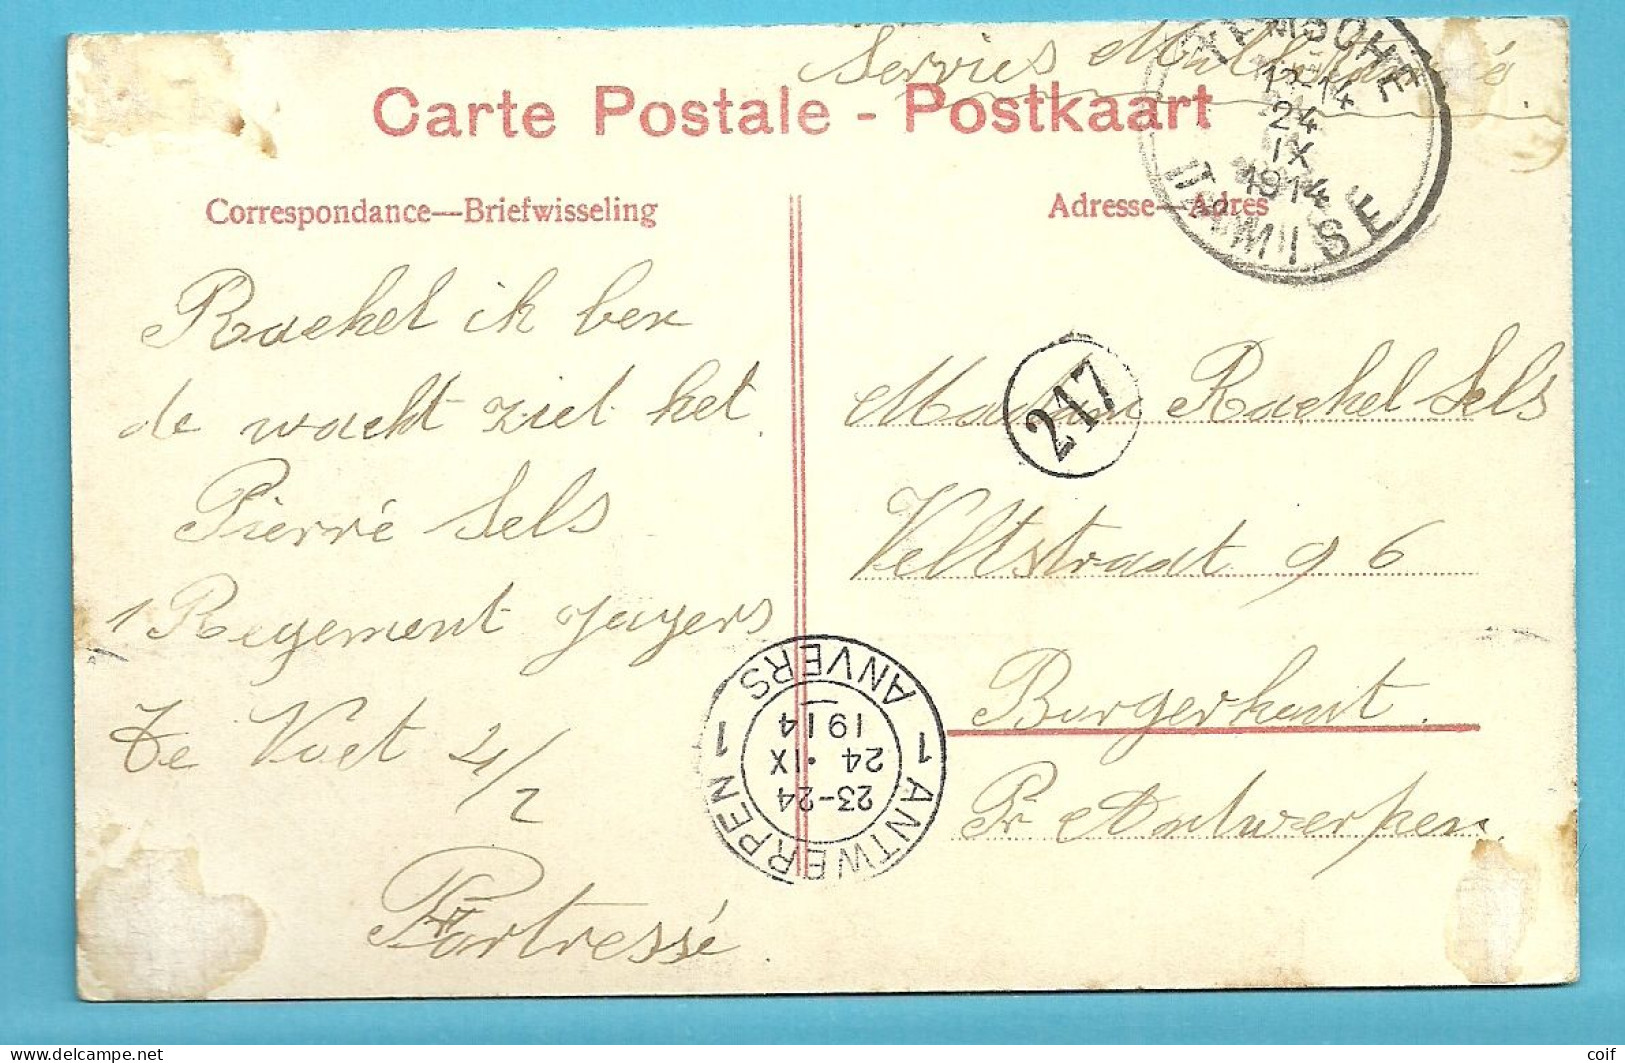 Carte Postale - Postkaart
Correspondance—Briefwisseling
Rachel ik ben
de wacht ziet het
Pierré Sels
1 Regement Jagers
Te Voet 4/2
Fortressé
Servies
TEMSCHE
13-14
24
IX
1914
TAMISE
Adresse—Adres
217
Madam Rachel Sels
Veltstraat 96
Borgerhout.
Pr Antwerpen.
1 ANTWERPEN 1
23-24
24 · IX
1914
ANVERS
coif